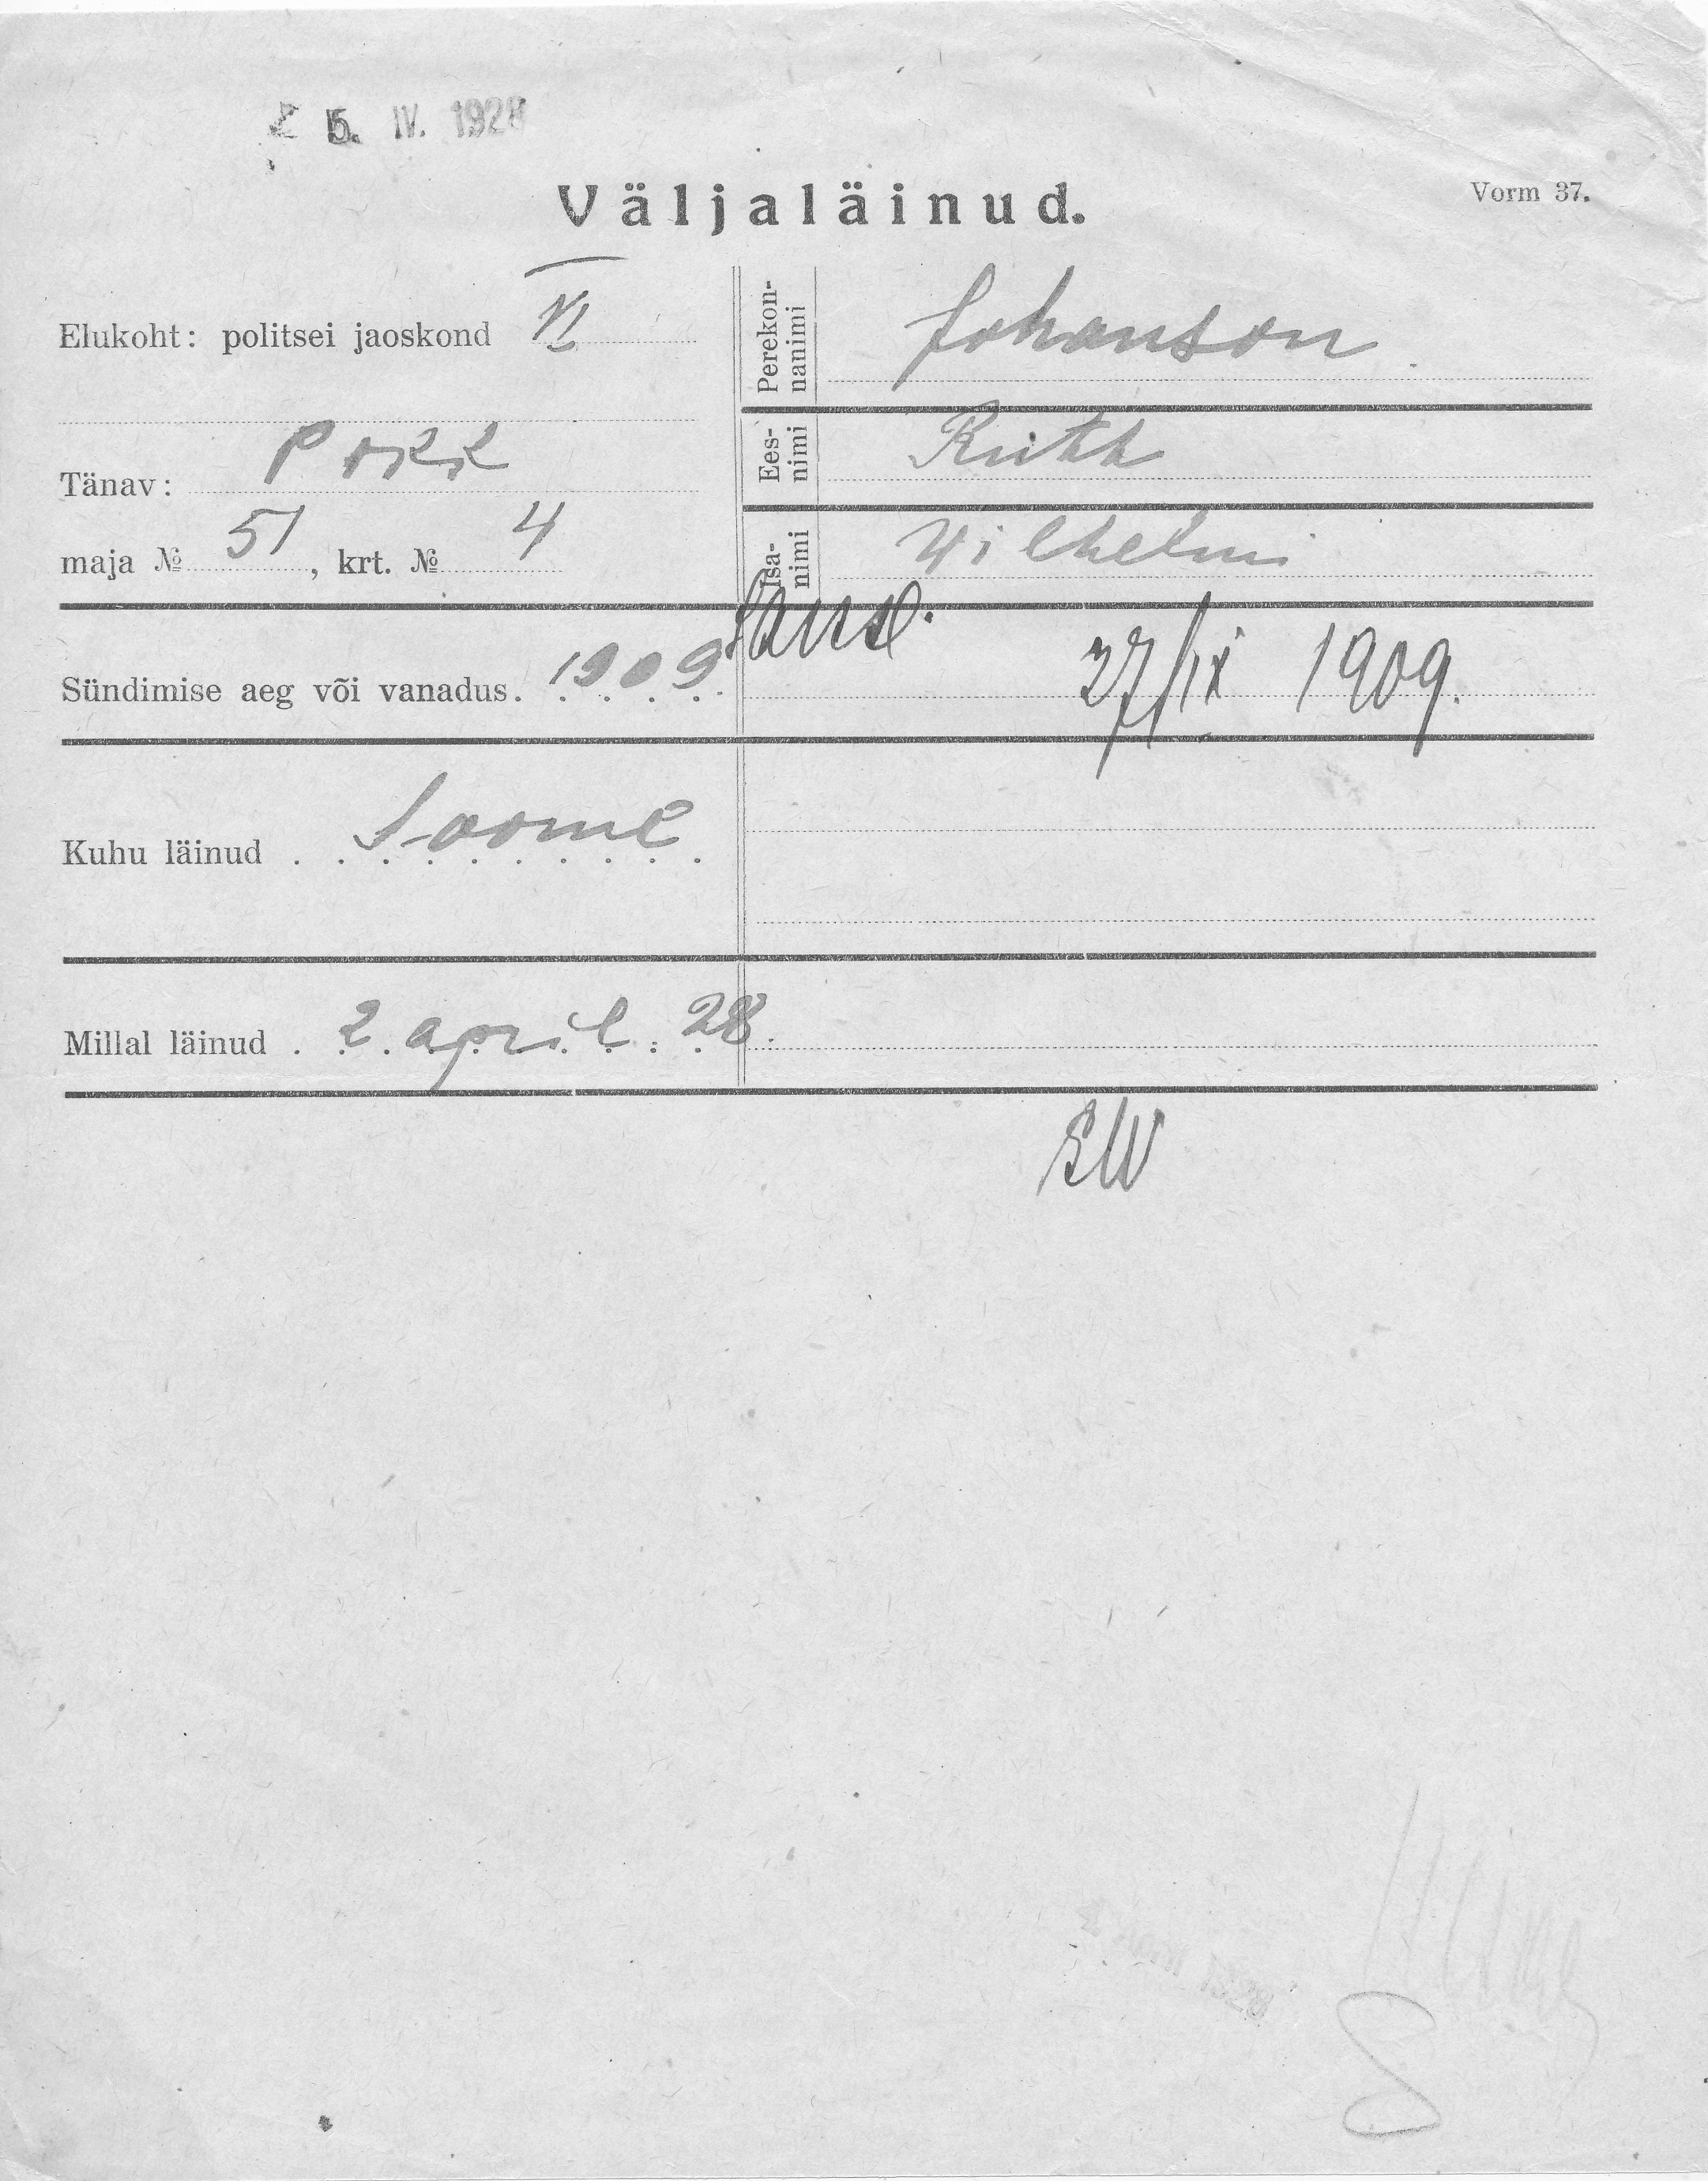 5. IV. 1928
Väljaläinud.
Vorm 37.
Elukoht: politsei jaoskond VI
Tänav: Pokk
maja № 51, krt. № 4
Perekon-
nanimi
Johanson
Ees-
nimi
Ruth
Isa-
nimi
Wilhelmi
Sündimise aeg või vanadus. 1909
27/IX 1909.
Kuhu läinud Soome
Millal läinud 2. april. 28.
EW